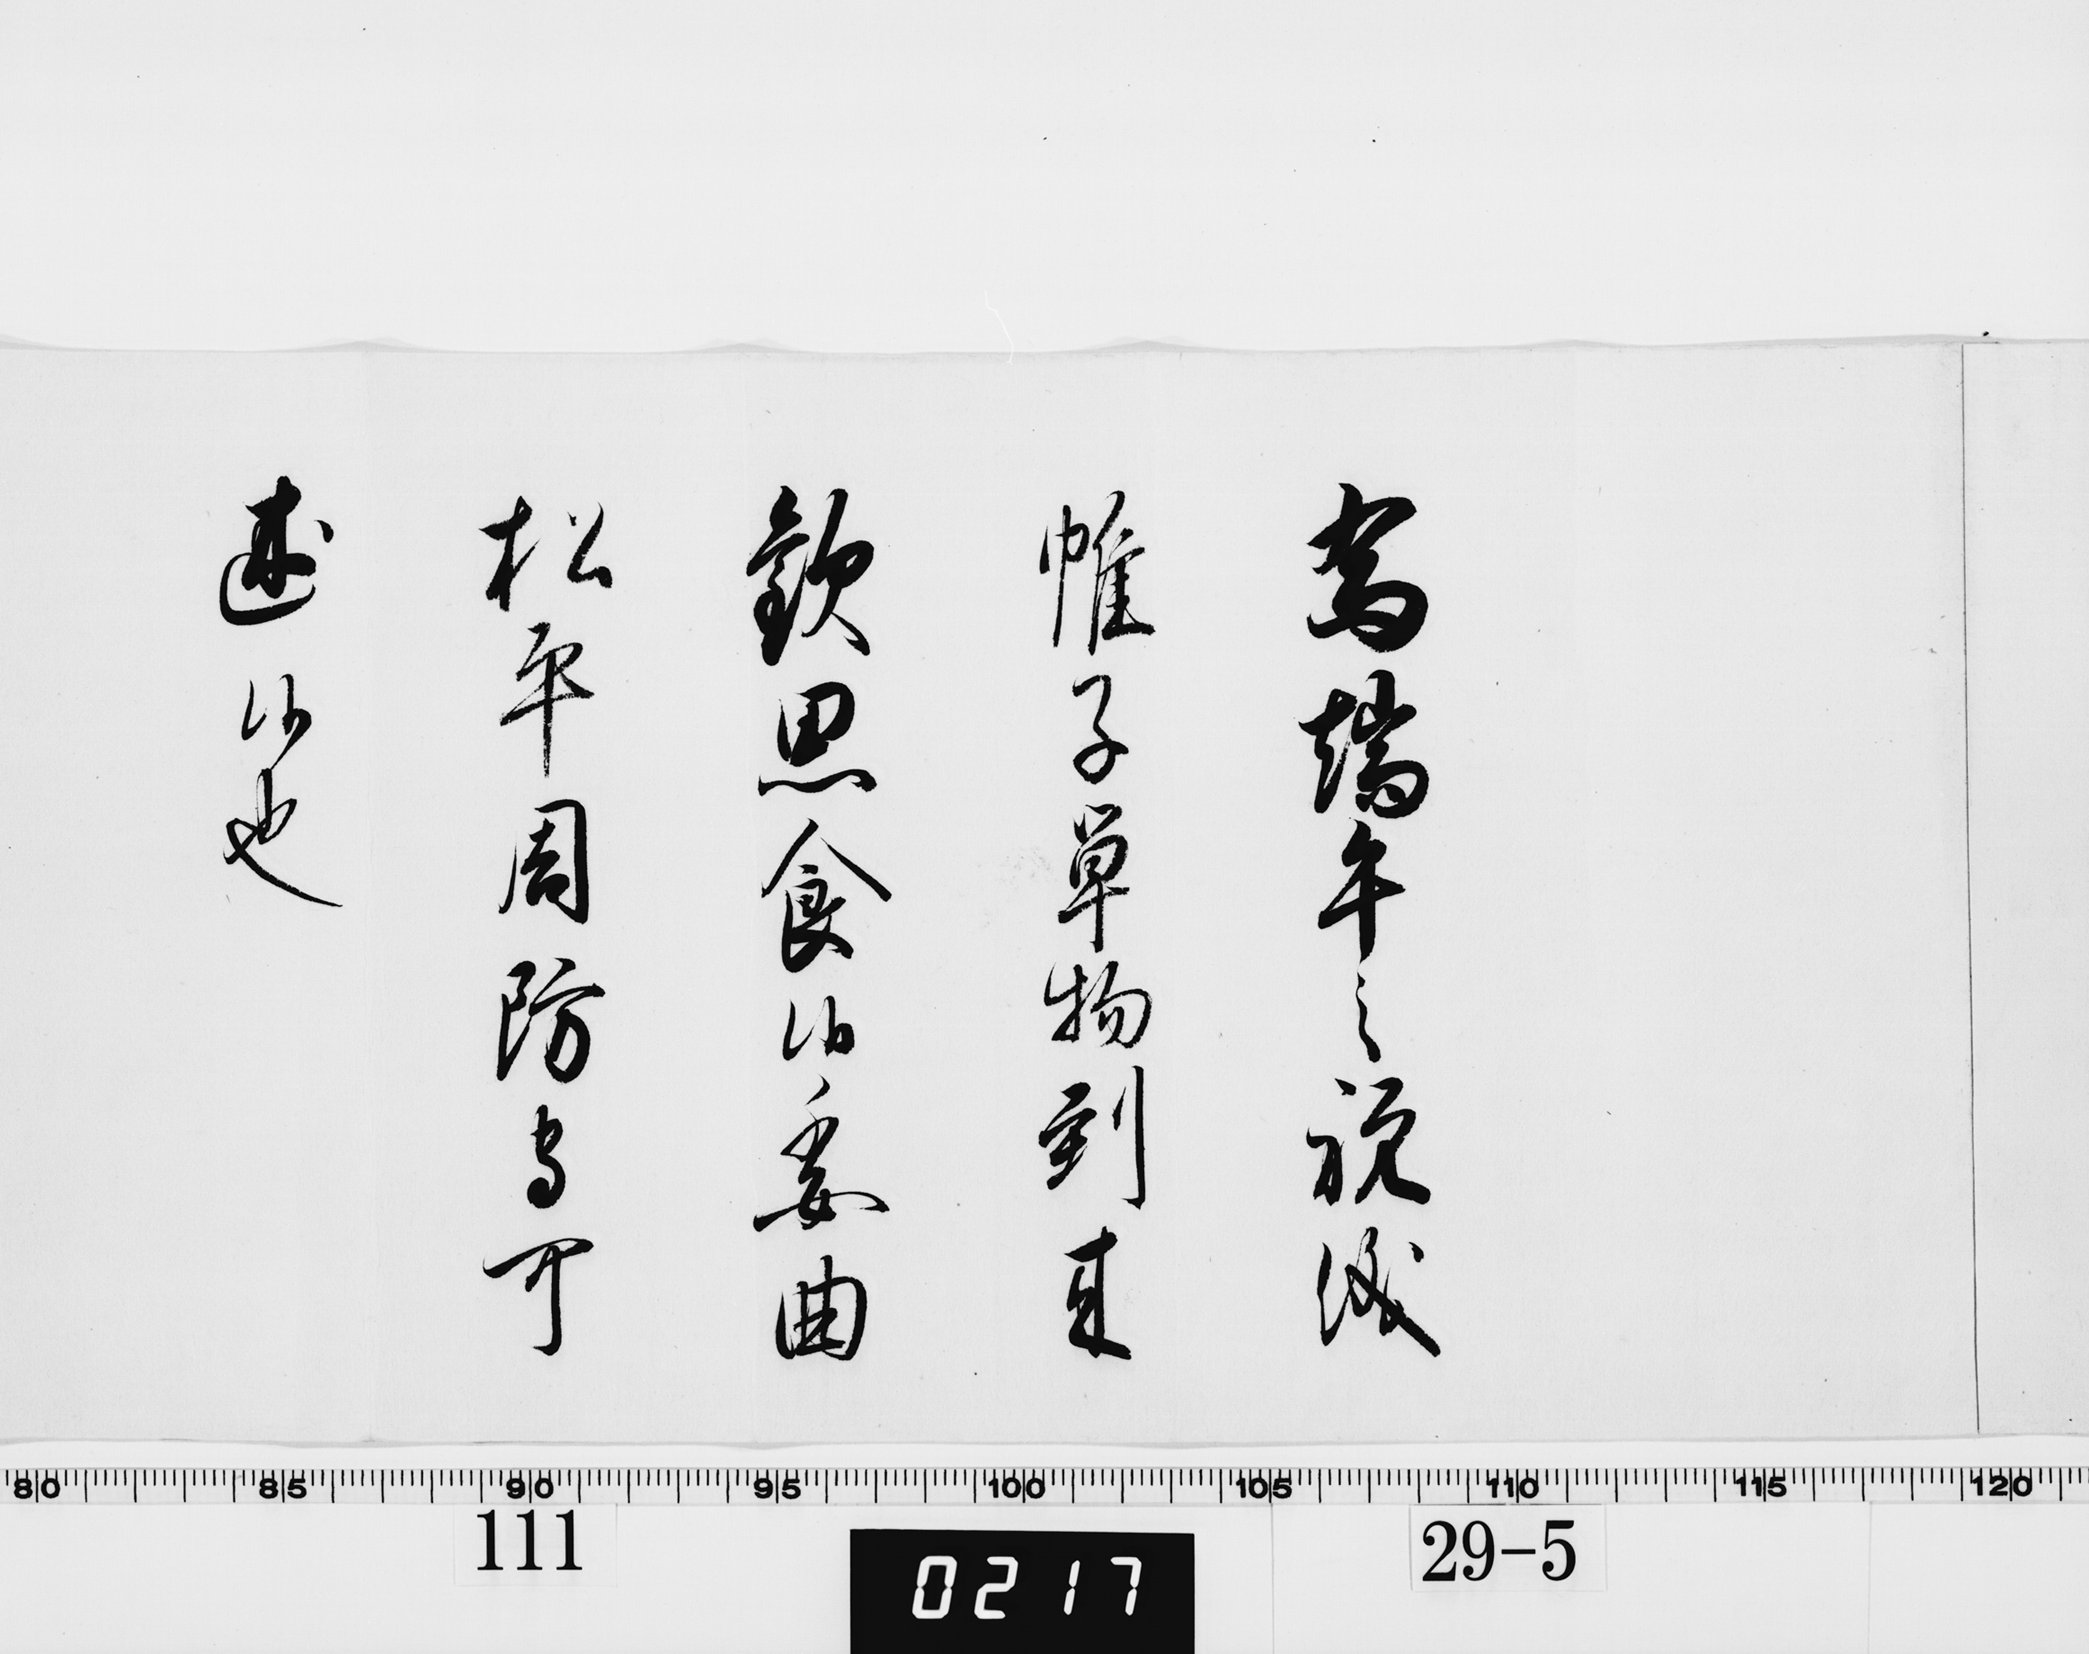 為端午之祝儀
帷子単物到来
歓思食候委曲
松平周防守可
述候也
80 85 90 95 100 105 110 115 120
111
0217
29-5